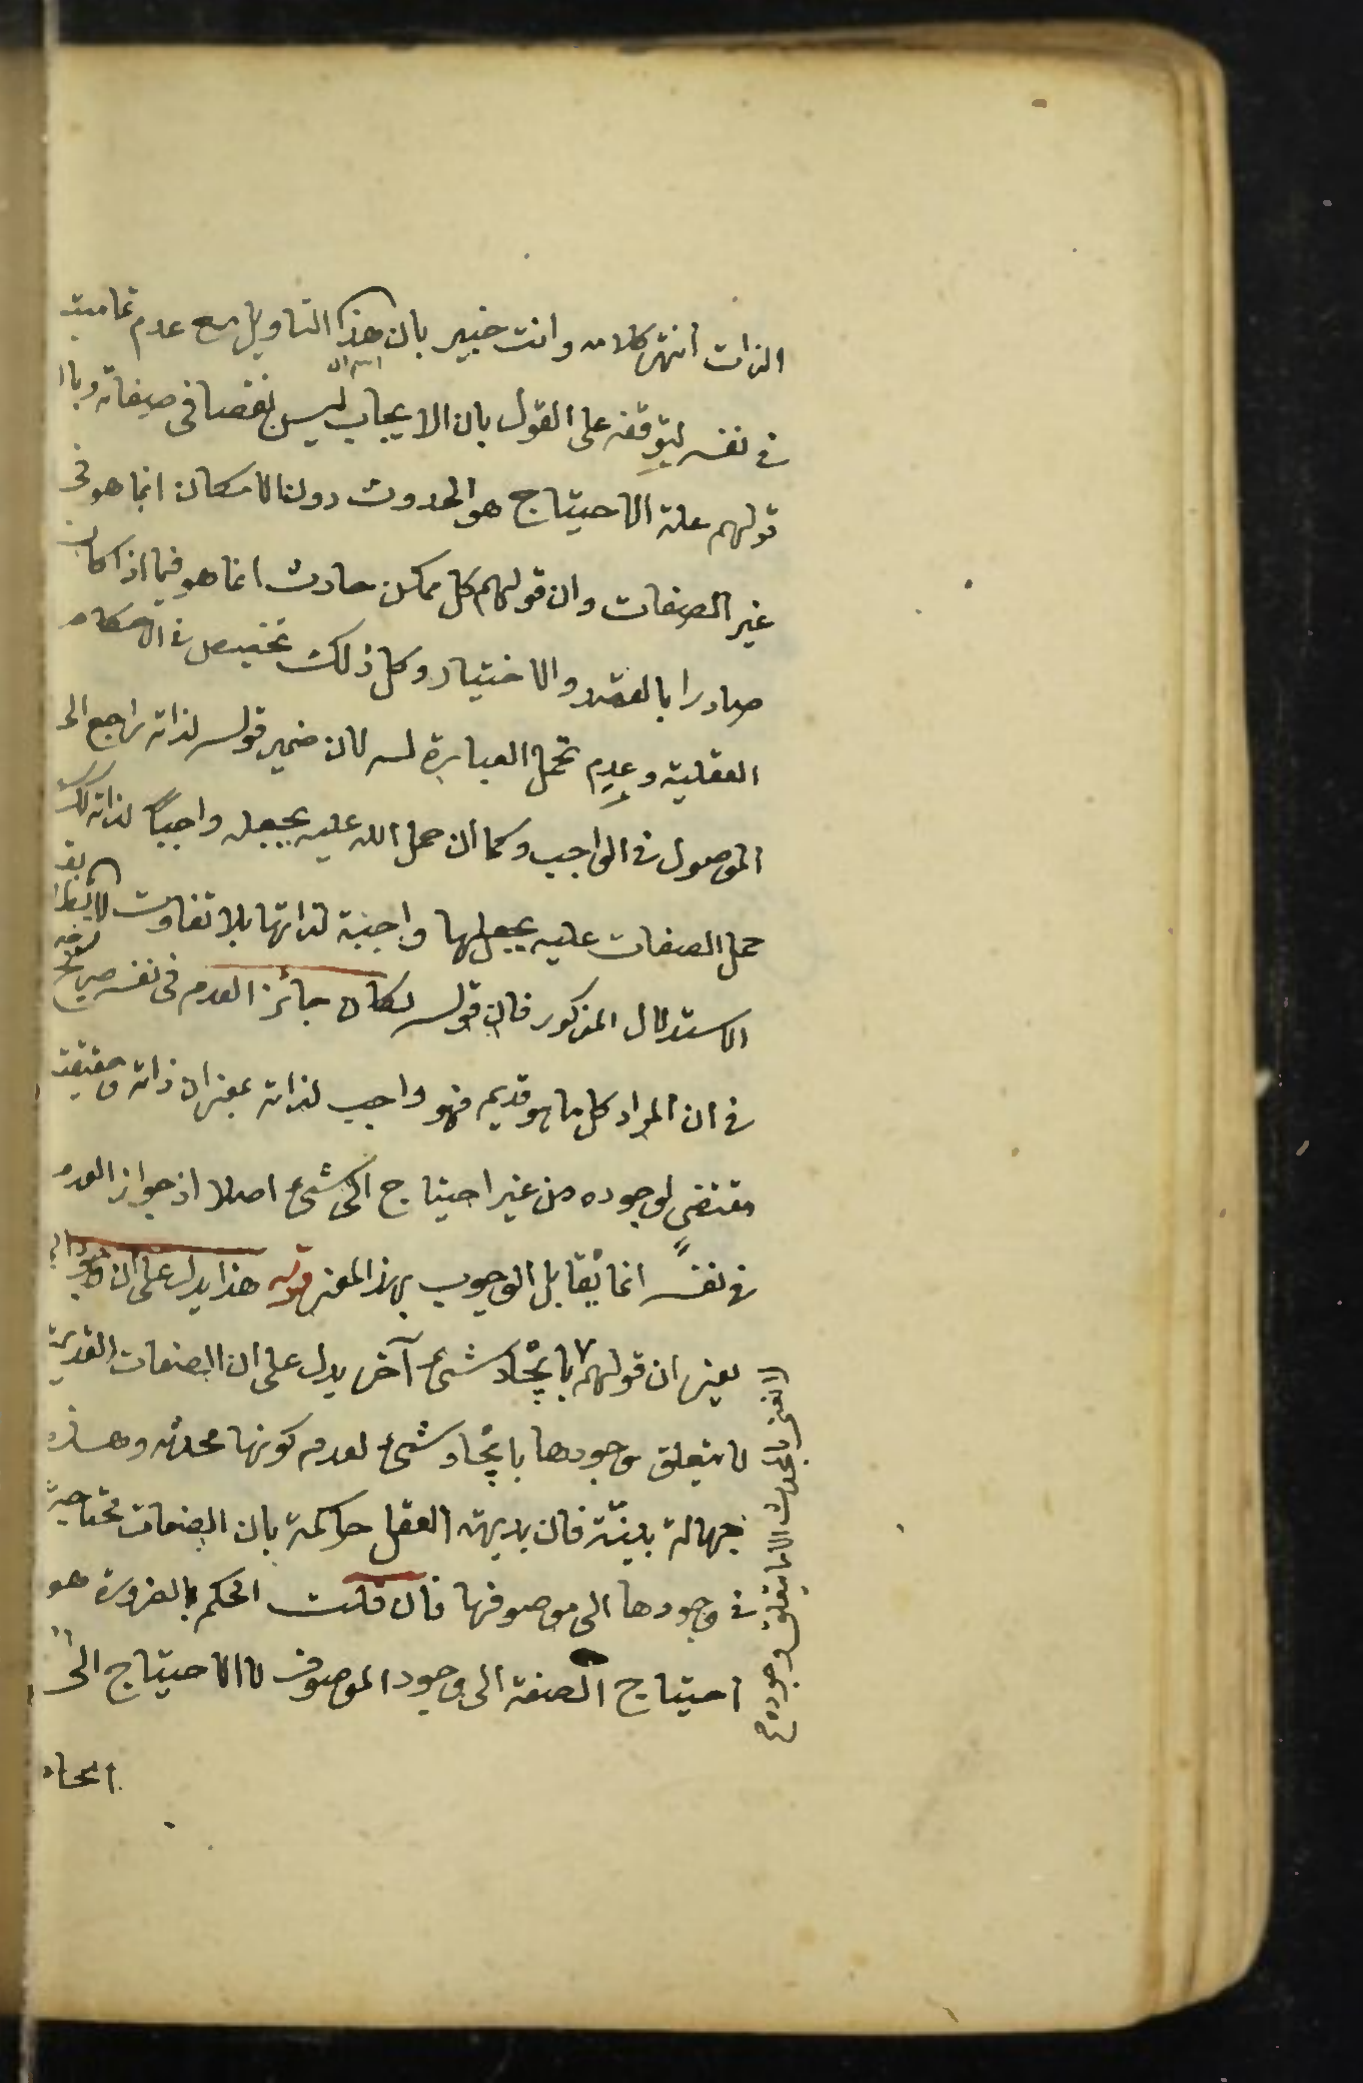 الذات انتهى كلامه وانت خبير بان هذا التاويل مع عدم تماميته
في نفسه لتوقفه على القول بان الايجاب ليس نقصا في صفاته وبان
قولهم علة الاحتياج هو الحدوث دون الامكان انما هو في
غير الصفات وان قولهم كل ممكن حادث انما هو فيما اذا كان
صادرا بالقصد والاختيار وكل ذلك تخصيص في الاحكام
العقلية وعدم تحمل العبارة له لان ضمير قوله لذاته راجع الى
الموصول في الواجب وكما ان حمل الله عليه يجعله واجباً لذاته كذلك
حمل الصفات عليه يجعلها واجبة لذاتها بلا تفاوت
الاستدلال المذكور فان قوله لكان جائز العدم في نفسه صريح
في ان المراد كل ما هو قديم فهو واجب لذاته بمعنى ان ذاته وحقيقته
مقتضى لوجوده من غير احتياج الى شئ اصلا اذ جواز العدم
في نفسه انما يقابل الوجوب بهذا المعنى قوله هذا يدل على ان
يعنى ان قولهم بايجاد شئ آخر يدل على ان الصفات القديمة
لا يتعلق وجودها بايجاد شئ لعدم كونها محدثه وهذه
جهالة بينة فان بديهة العقل حاكمة بان الصفات محتاجة
في وجودها الى موصوفها فان قلت الحكم بالضرورة هو
احتياج الصفة الى وجود الموصوف لا الاحتياج الى
ايجاد
اذ لا نعنى بالمحدث الا ما يتعلق وجوده